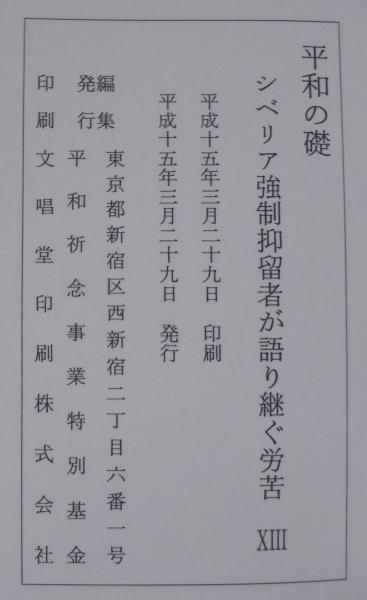 平和の礎
シベリア強制抑留者が語り継ぐ労苦 XIII
平成十五年三月二十九日 印刷
平成十五年三月二十九日 発行
東京都新宿区西新宿二丁目六番一号
編集
発行 平和祈念事業特別基金
印刷 文唱堂印刷株式会社